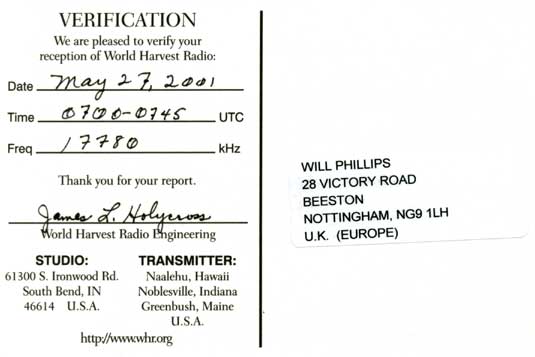 VERIFICATION
We are pleased to verify your
reception of World Harvest Radio:
Date May 27, 2001
Time 0700-0745 UTC
Freq 17780 kHz
Thank you for your report.
James L. Holycross
World Harvest Radio Engineering
STUDIO:
61300 S. Ironwood Rd.
South Bend, IN
46614 U.S.A.
TRANSMITTER:
Naalehu, Hawaii
Noblesville, Indiana
Greenbush, Maine
U.S.A.
http://www.whr.org
WILL PHILLIPS
28 VICTORY ROAD
BEESTON
NOTTINGHAM, NG9 1LH
U.K. (EUROPE)